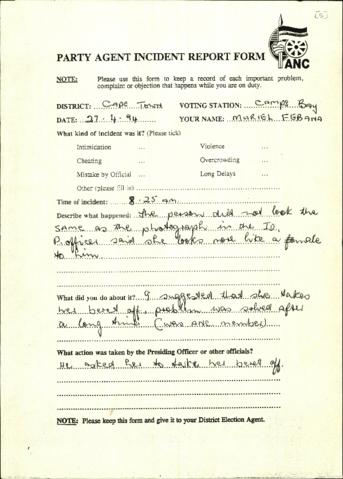 [5]
PARTY AGENT INCIDENT REPORT FORM
ANC
NOTE: Please use this form to keep a record of each important problem,
complaint or objection that happens while you are on duty.
DISTRICT: Cape Town VOTING STATION: Camps Bay
DATE: 27.4.94 YOUR NAME: MURIEL
What kind of incident was it? (Please tick)
Intimidation ... Violence ...
Cheating ... Overcrowding ...
Mistake by Official ... Long Delays ...
Other (please fill in)
Time of incident: 8.25 am
Describe what happened: The person did not look the
same as the photograph in the ID.
P. officer said she looks more like a female
to him
What did you do about it? I suggested that she takes
her beret off, problem was solved after
a long time. (was ANC member)
What action was taken by the Presiding Officer or other officials?
He asked her to take her beret off.
NOTE: Please keep this form and give it to your District Election Agent.